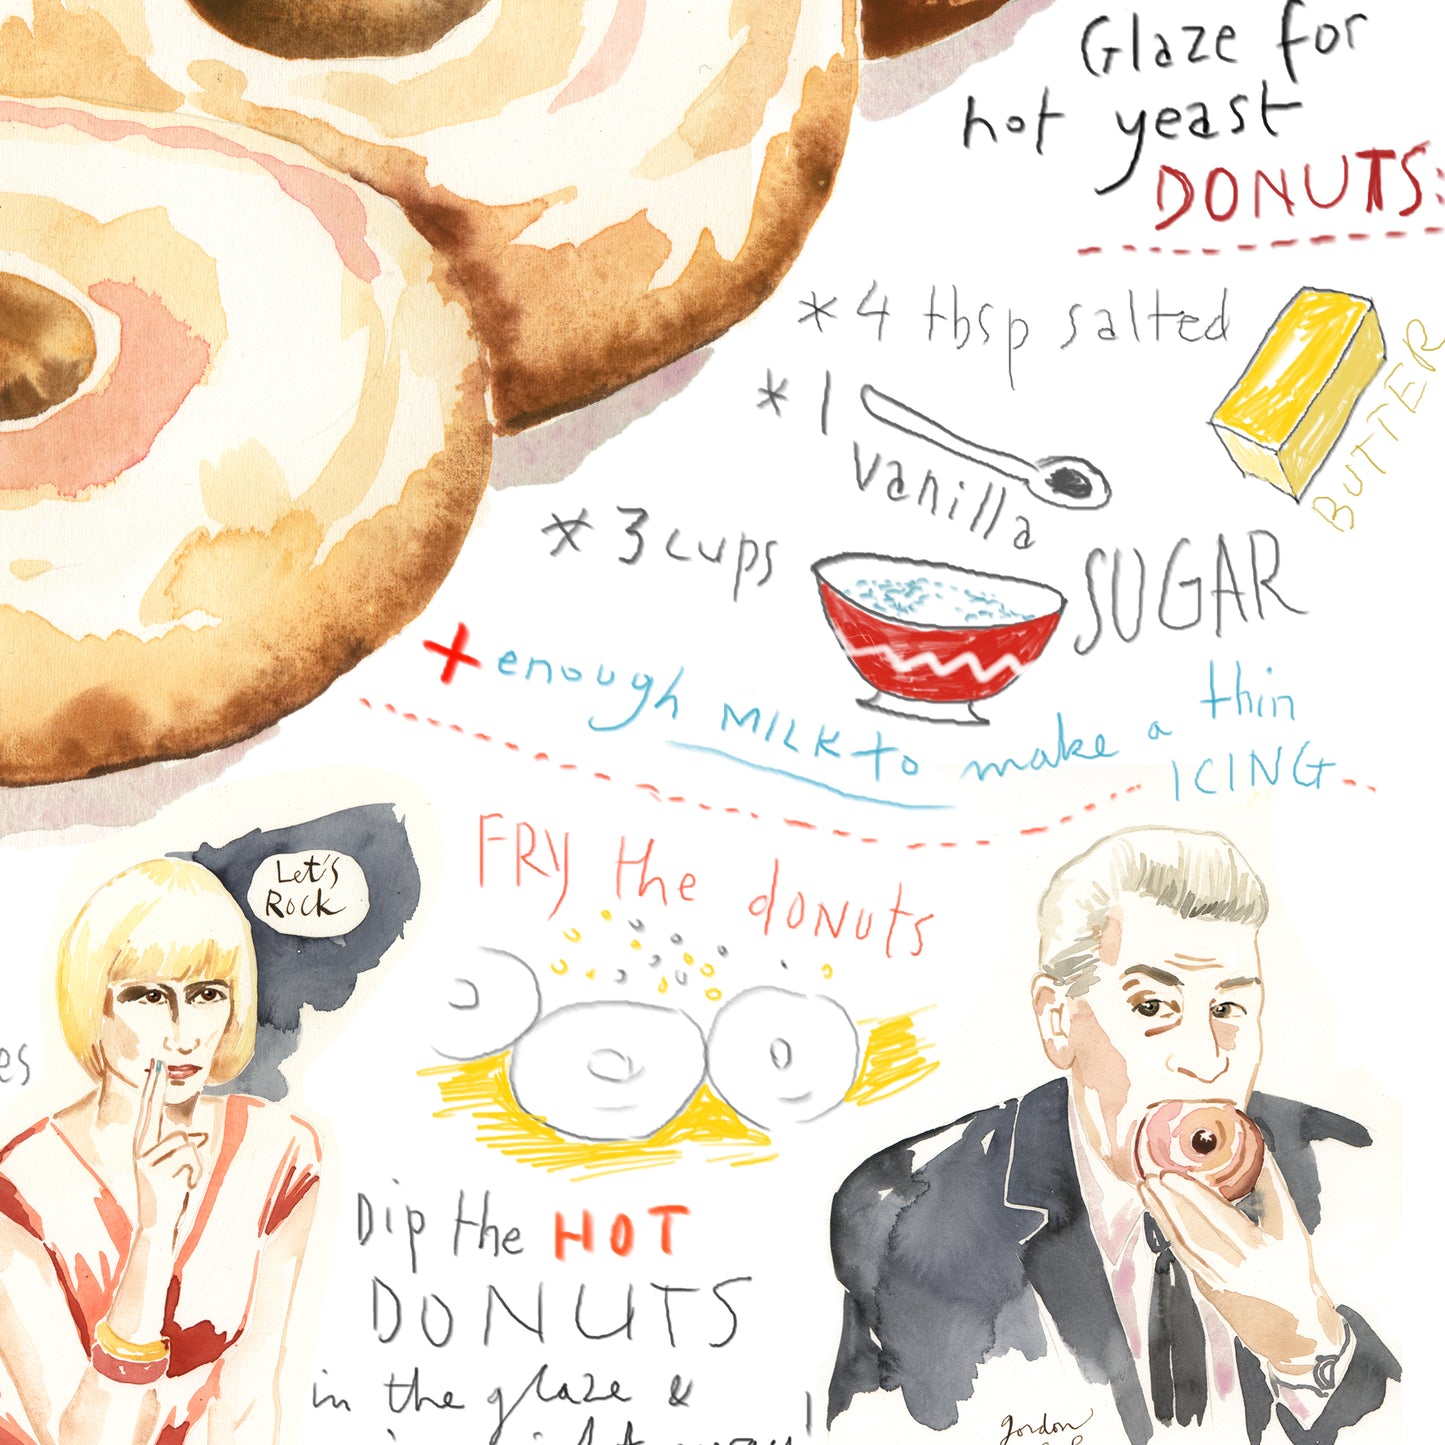 Glaze for
hot yeast
DONUTS:
* 4 tbsp salted
BUTTER
* 1
vanilla
* 3 cups
SUGAR
+ enough MILK to make a thin
ICING
FRY the donuts
Let's
Rock
es
Dip the HOT
DONUTS
in the glaze &
gordon